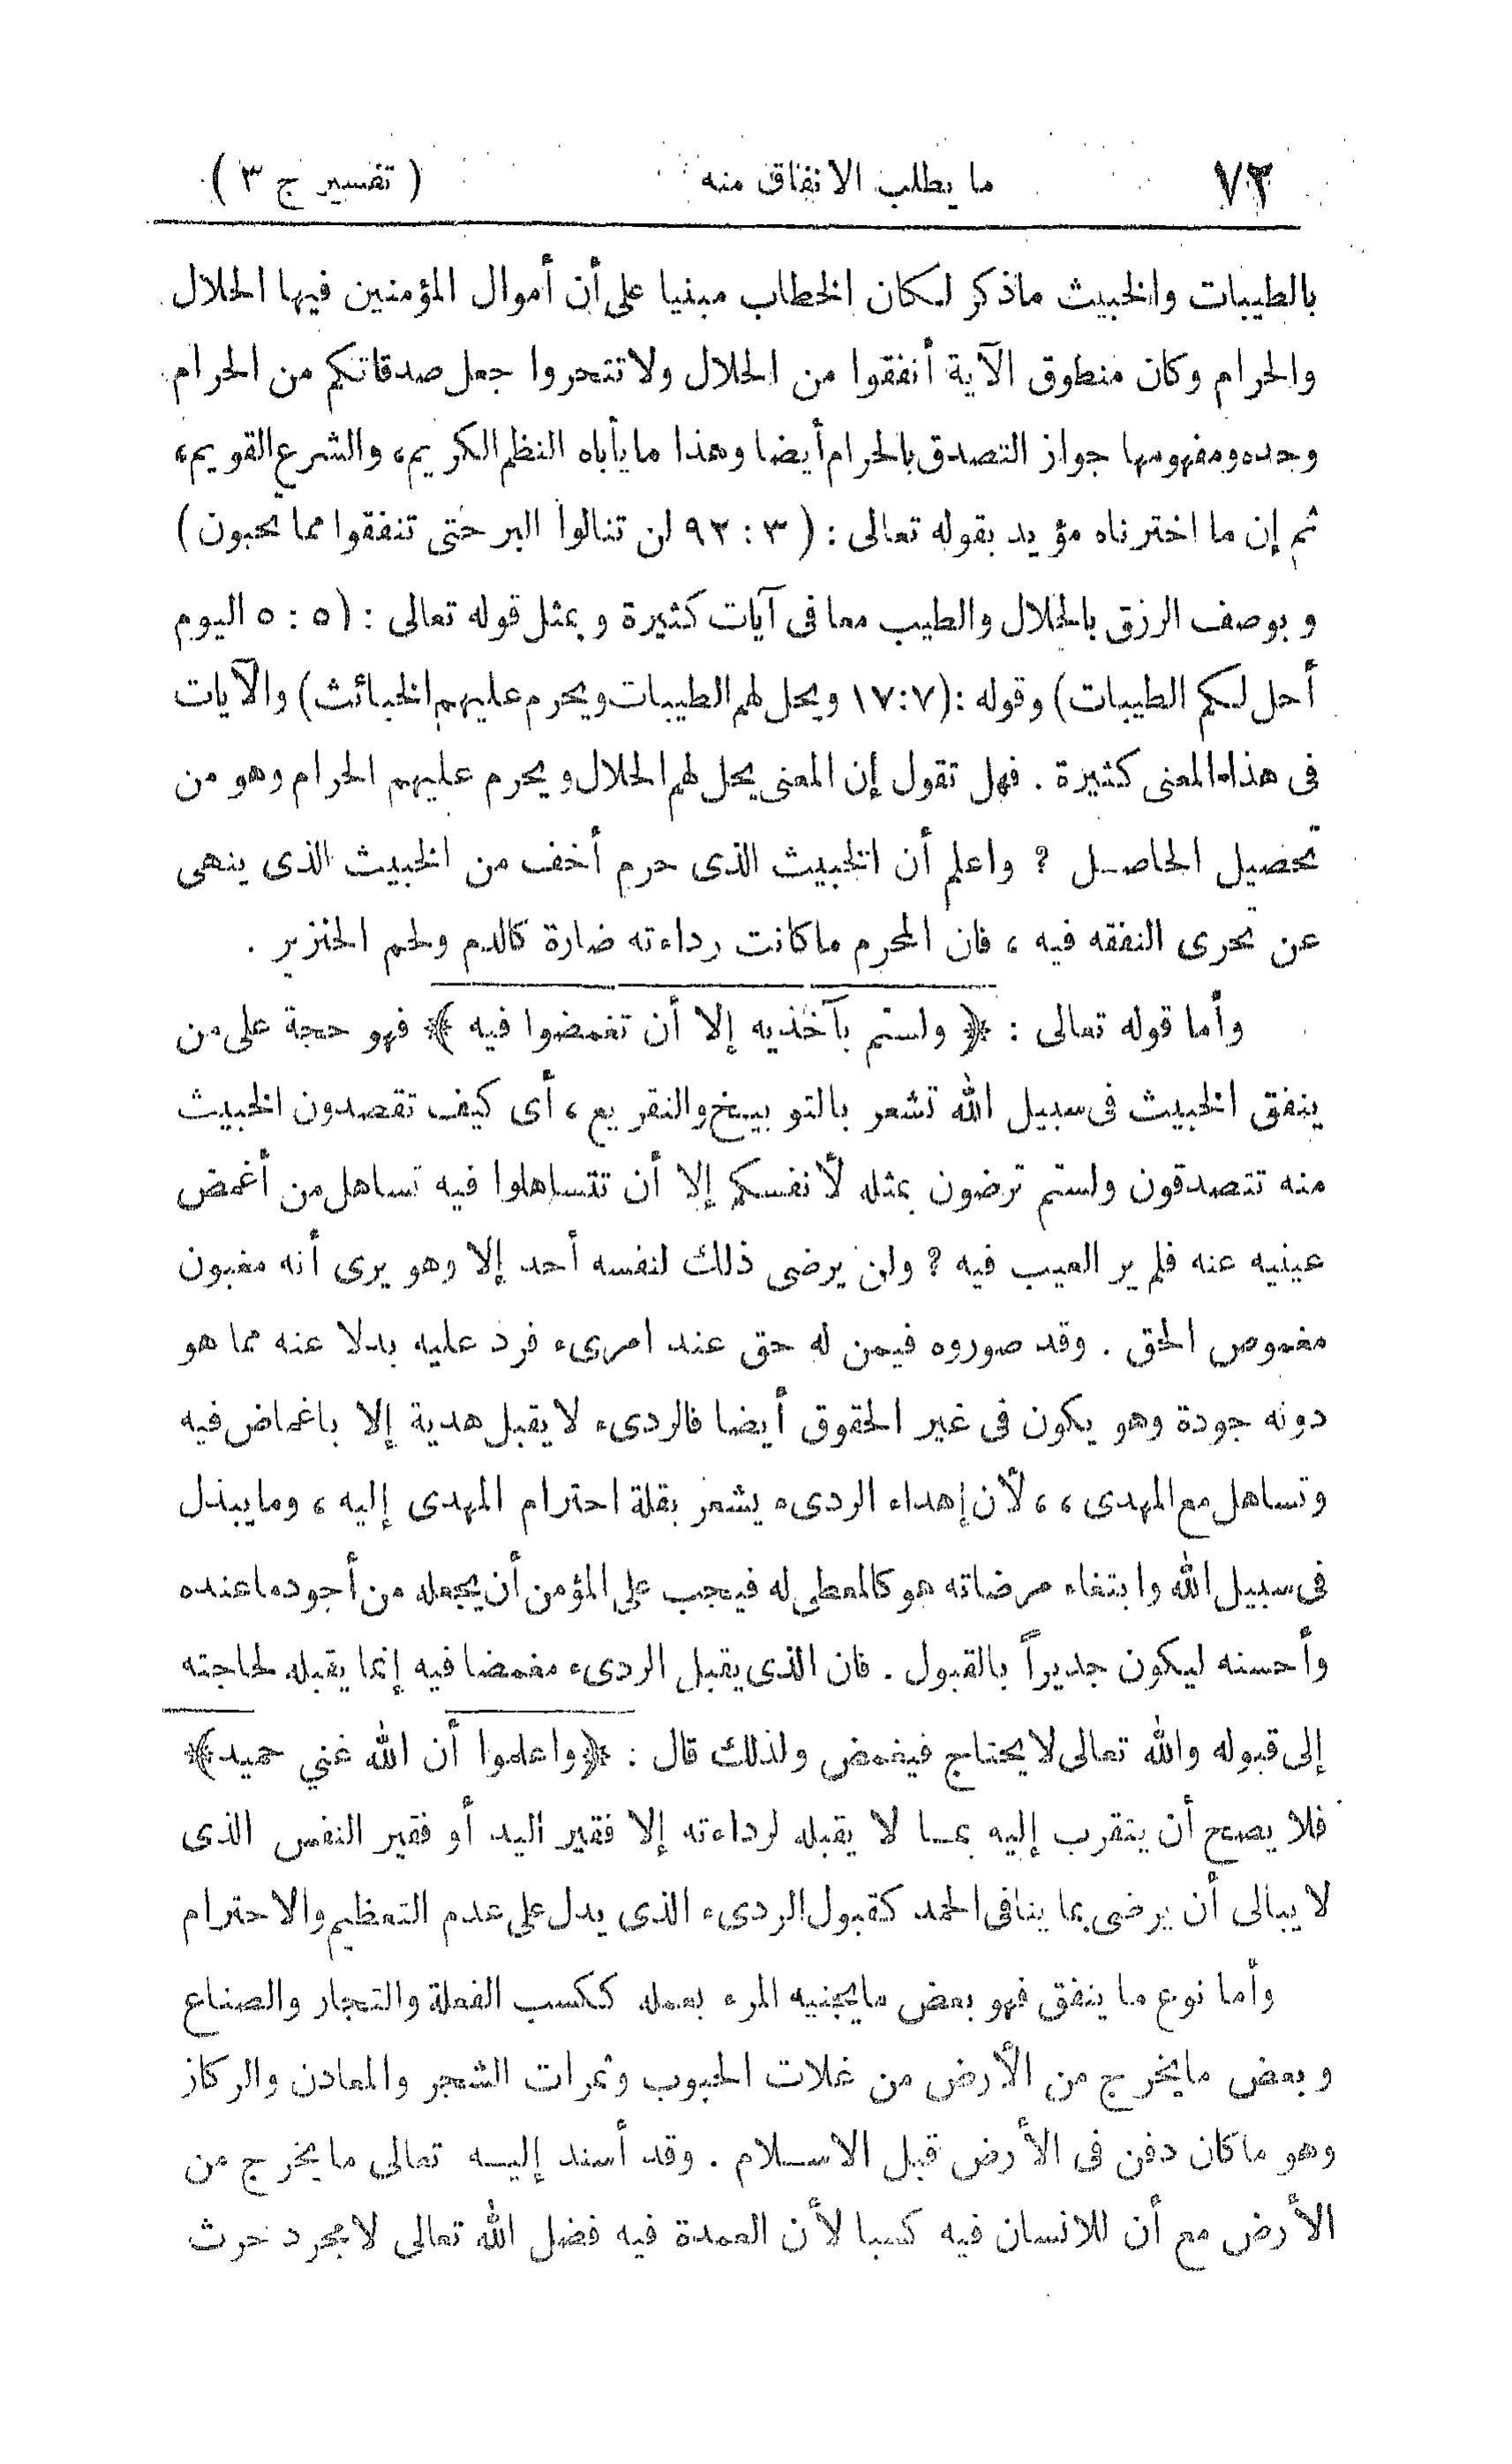 ٧٢ ما يطلب الانفاق منه ( تفسير ج ٣ )
بالطيبات والخبيث ماذكر لكان الخطاب مبنيا على أن أموال المؤمنين فيها الحلال
والحرام وكان منطوق الآية أنفقوا من الحلال ولا تتحروا جعل صدقاتكم من الحرام
وحده ومفهومها جواز التصدق بالحرام أيضا وهذا ما يأباه النظم الكريم، والشرع القويم،
ثم إن ما اخترناه مؤيد بقوله تعالى : ( ٣ : ٩٢ لن تنالوا البر حتى تنفقوا مما تحبون )
وبوصف الرزق بالحلال والطيب معا فى آيات كثيرة وبمثل قوله تعالى : ( ٥ : ٥ اليوم
أحل لكم الطيبات ) وقوله : ( ٧ : ١٧ ويحل لهم الطيبات ويحرم عليهم الخبائث ) والآيات
فى هذا المعنى كثيرة . فهل تقول إن المعنى يحل لهم الحلال ويحرم عليهم الحرام وهو من
تحصيل الحاصل ؟ واعلم أن الخبيث الذى حرم أخف من الخبيث الذى ينهى
عن تحرى النفقه فيه ، فان المحرم ما كانت رداءته ضارة كالدم ولحم الخنزير .
وأما قوله تعالى : ﴿ ولستم بآخذيه إلا أن تغمضوا فيه ﴾ فهو حجة على من
ينفق الخبيث فى سبيل الله تشعر بالتوبيخ والتقريع ، أى كيف تقصدون الخبيث
منه تتصدقون ولستم ترضون بمثله لأنفسكم إلا أن تتساهلوا فيه تساهل من أغمض
عينيه عنه فلم ير العيب فيه ؟ ولن يرضى ذلك لنفسه أحد إلا وهو يرى أنه مغبون
مغموص الحق . وقد صوروه فيمن له حق عند امرىء فرد عليه بدلا عنه مما هو
دونه جودة وهو يكون فى غير الحقوق أيضا فالردىء لا يقبل هدية إلا باغماض فيه
وتساهل مع المهدى ، ، لأن إهداء الردىء يشعر بقلة احترام المهدى إليه ، وما يبذل
فى سبيل الله وابتغاء مرضاته هو كالمعطى له فيجب على المؤمن أن يجعله من أجود ما عنده
وأحسنه ليكون جديراً بالقبول . فان الذى يقبل الردىء مغمضا فيه إنما يقبله لحاجته
إلى قبوله والله تعالى لا يحتاج فيغمض ولذلك قال : ﴿ واعلموا أن الله غني حميد ﴾
فلا يصح أن يتقرب إليه بما لا يقبله لرداءته إلا فقير اليد أو فقير النفس الذى
لا يبالى أن يرضى بما ينافى الحمد كقبول الردىء الذى يدل على عدم التعظيم والاحترام
وأما نوع ما ينفق فهو بعض ما يجنيه المرء بعمله ككسب الفعلة والتجار والصناع
وبعض ما يخرج من الأرض من غلات الحبوب وثمرات الشجر والمعادن والركاز
وهو ما كان دفن فى الأرض قبل الاسلام . وقد أسند إليه تعالى ما يخرج من
الأرض مع أن للانسان فيه كسبا لأن العمدة فيه فضل الله تعالى لا مجرد حرث